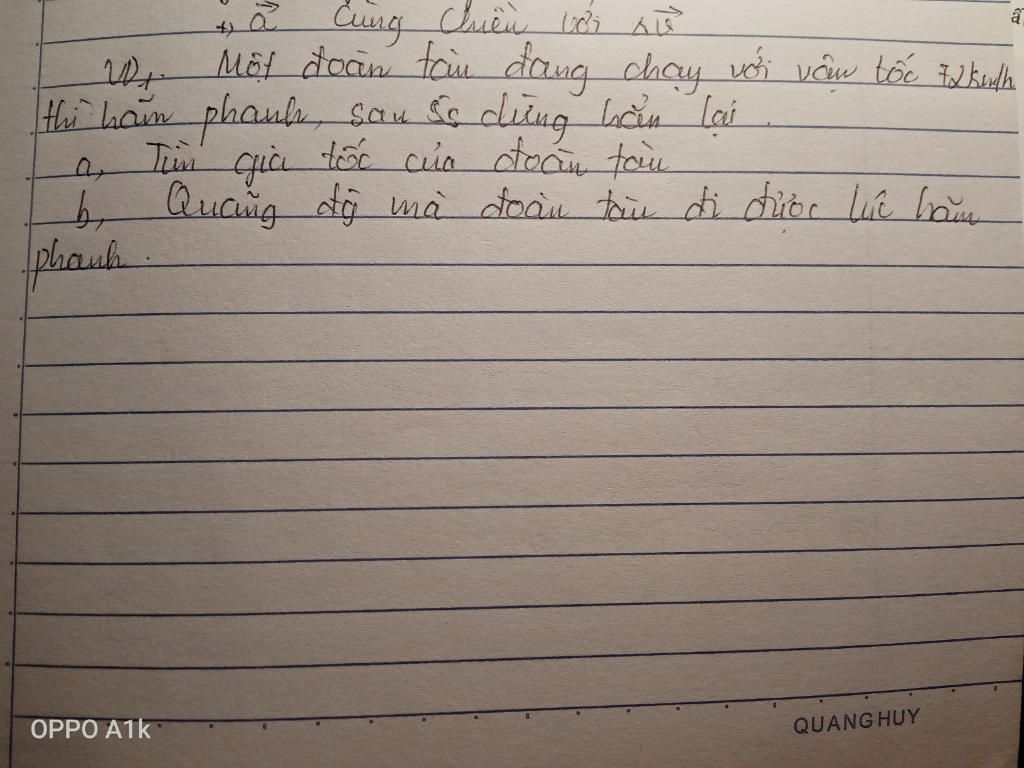 +, a⃗ cùng chiều với Δv⃗
VD1: Một đoàn tàu đang chạy với vận tốc 72km/h
thì hãm phanh, sau 5s dừng hẳn lại.
a, Tìm gia tốc của đoàn tàu
b, Quãng đg mà đoàn tàu đi được lúc hãm
phanh.
QUANG HUY
OPPO A1k